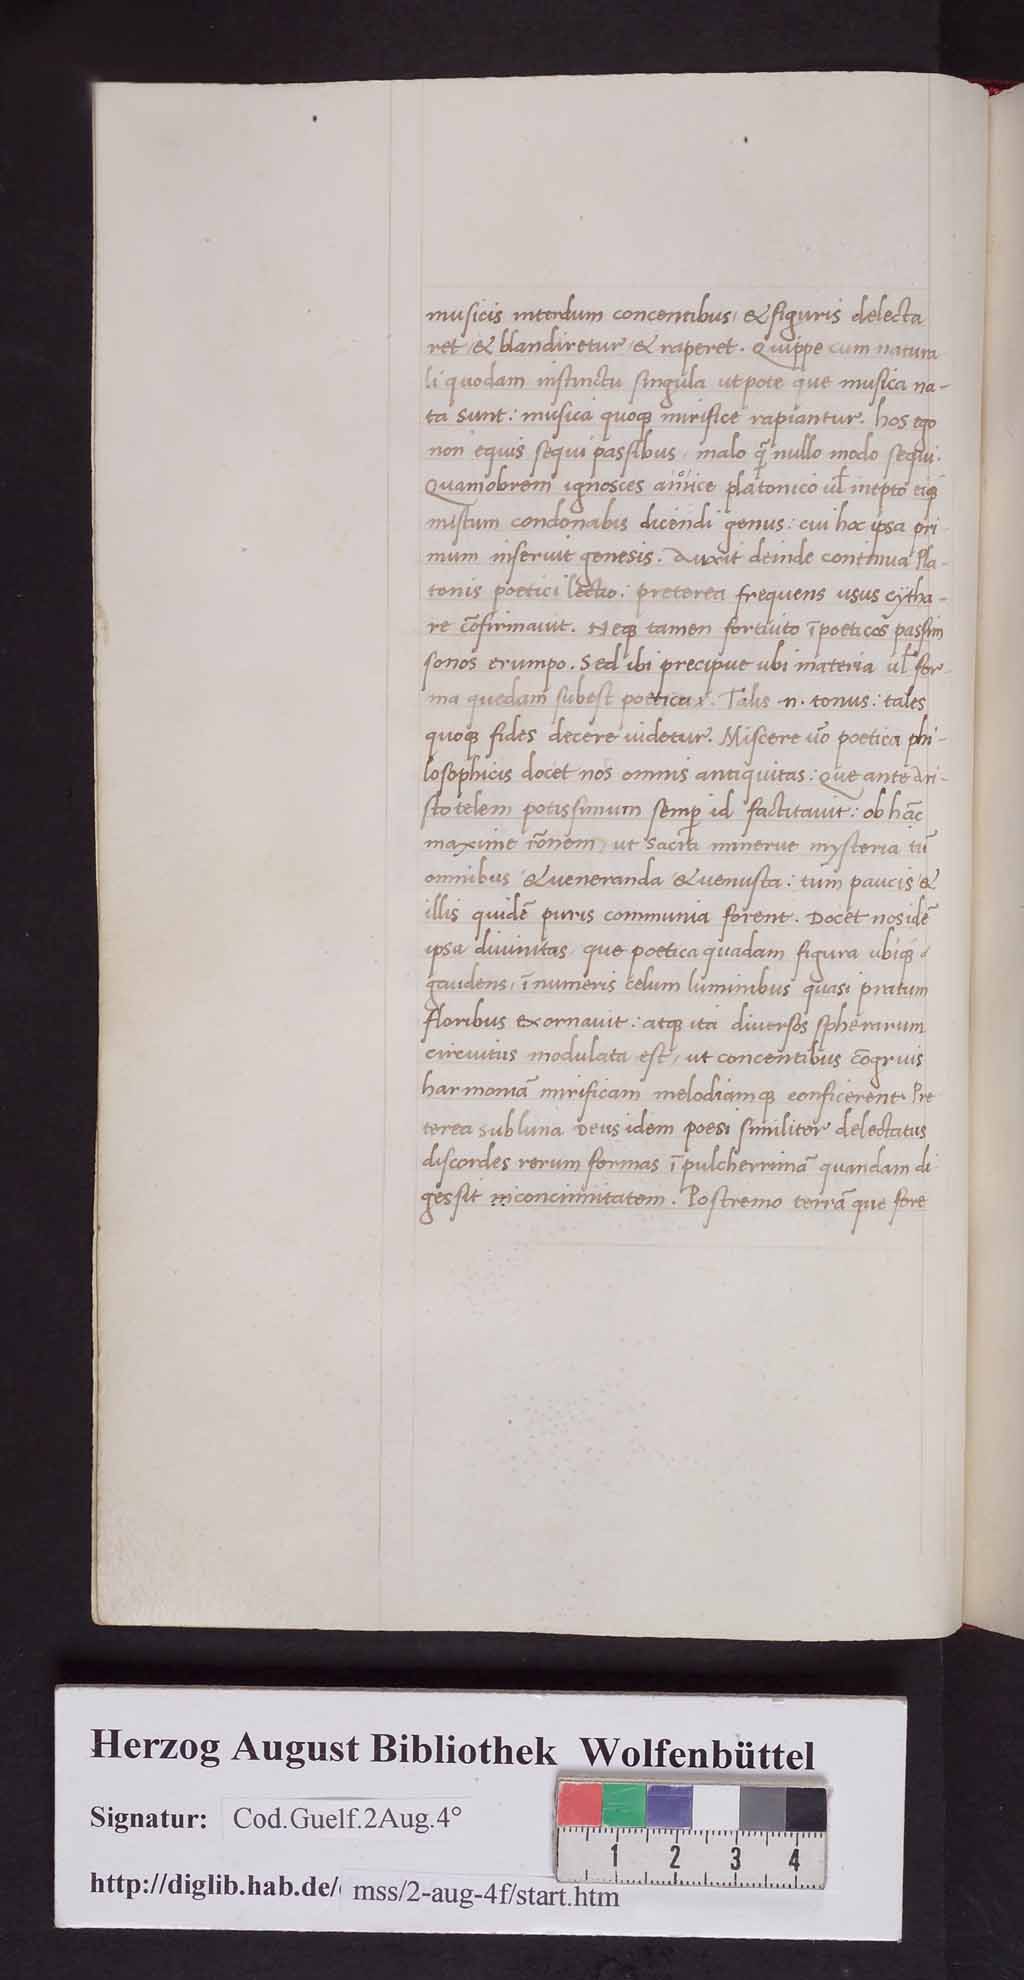 musicis interdum concentibus, & figuris delecta
ret, & blandiretur, & raperet. Quippe cum natura
li quodam instinctu singula utpote que musica na-
ta sunt: musica quoqꝫ mirifice rapiantur. hos ego
non equis sequi passibus, malo q̃ nullo modo sequi.
Quamobrem ignosces amice platonico ul̃ inepto eiqꝫ
mistum condonabis dicendi genus: cui hoc ipsa pri
mum inseruit genesis. Auxit deinde continua Pla-
tonis poetici lectio: preterea frequens usus cytha-
re cõfirmavit. Neqꝫ tamen fortuito ĩ poeticos passim
sonos erumpo. Sed ibi precipue ubi materia ul̃ for-
ma quedam subest poetica. Talis .n. tonus: tales
quoqꝫ fides decere uidetur. Miscere ũo poetica phi-
losophicis docet nos omnis antiquitas: Que ante Ari-
stotelem potissimum semp̃ id factitauit: ob hãc
maxime rõnem, ut sacra minerue mysteria tũ
omnibus & ueneranda & uenusta: tum paucis &
illis quidẽ puris communia forent. Docet nos idẽ
ipsa divinitas, que poetica quadam figura ubiqꝫ
gaudens, ĩnumeris celum luminibus quasi pratum
floribus exornauit: atqꝫ ita diversos spherarum
circuitus modulata est, ut concentibus cõgruis
harmoniã mirificam melodiamqꝫ conficerent. Pre
terea sub luna Deus idem poesi similiter delectatus
discordes rerum formas ĩ pulcherrimã quandam di
gessit inconcinnitatem. Postremo terrã que fore
Herzog August Bibliothek Wolfenbüttel
Signatur: Cod.Guelf.2Aug.4°
http://diglib.hab.de/ mss/2-aug-4f/start.htm
1 2 3 4